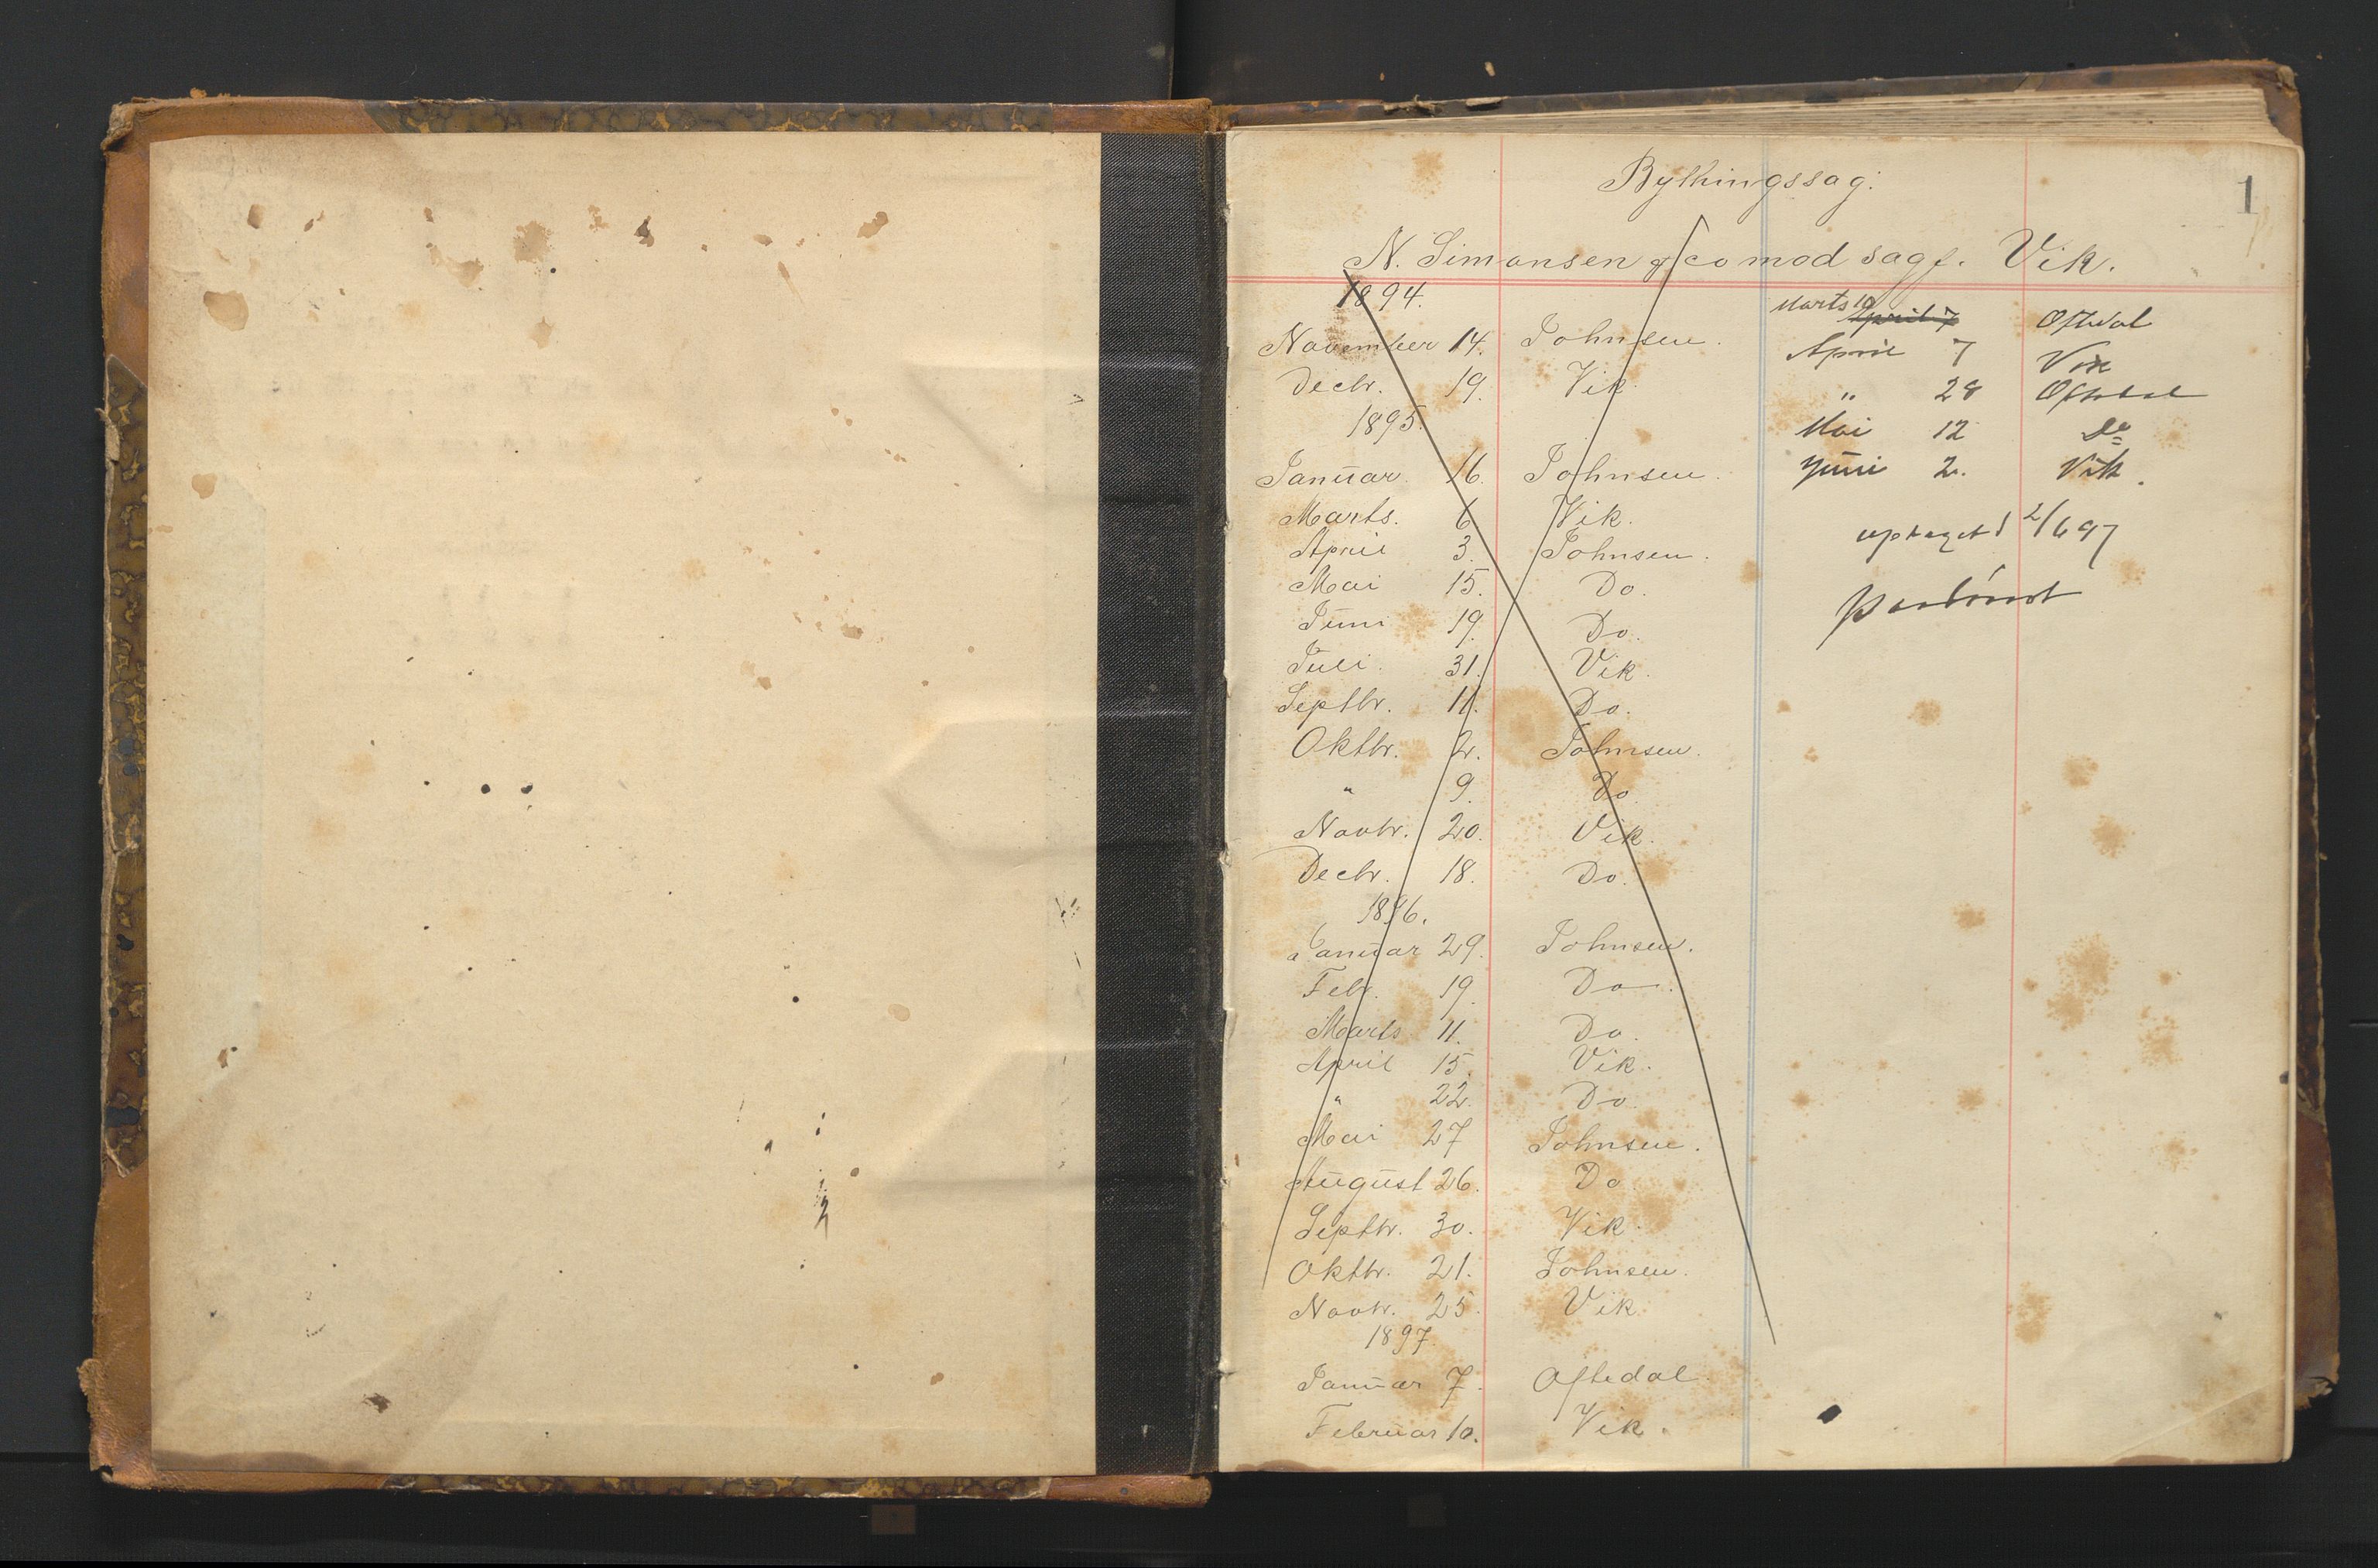 1
Bytningssag:
N. Simonsen & co mod sagf. Vik.
1894.
November 14. Johnsen.
Decbr. 19. Vik
1895.
Januar. 16. Johnsen.
Marts. 6 Vik.
April 3. Johnsen.
Mai 15. Do.
Juni 19. Do.
Juli. 31. Vik.
Septbr. 11. Do.
Oktbr. 2. Johnsen.
" 9. Do
Novbr. 20. Vik.
Decbr. 18. Do.
1896.
Januar 29. Johnsen.
Febr. 19. Do.
Marts 11. Do.
April 15. Vik.
" 22. Do.
Mai 27 Johnsen.
August 26. Do
Septbr. 30. Vik.
Oktbr. 21. Johnsen.
Novbr. 25. Vik
1897.
Januar 7. Oftedal.
Februar 10. Vik.
Marts 10 April 7 Oftedal
April 7 Vik
" 28 Oftedal
Mai 12 Do
Juni 2. Vik.
optaget 2/6 97